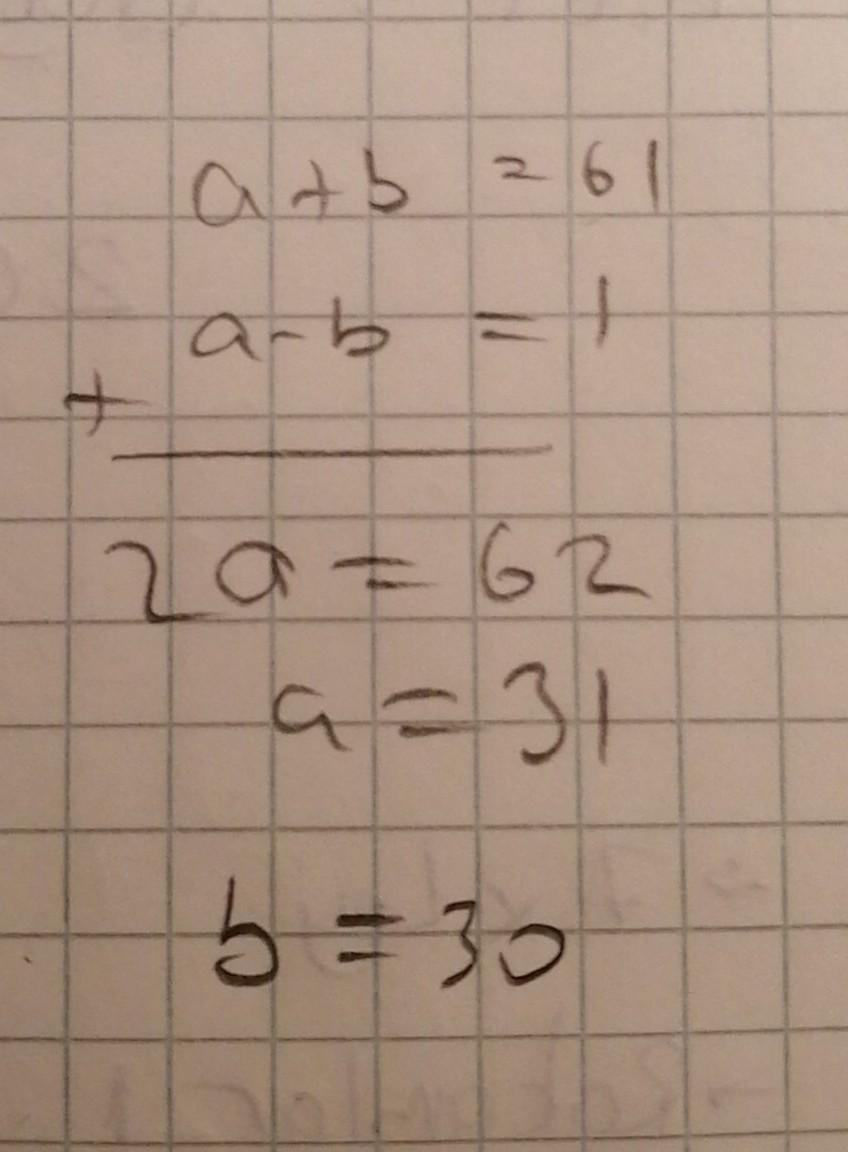 a+b = 61
a-b = 1
+
2a = 62
a = 31
b = 30